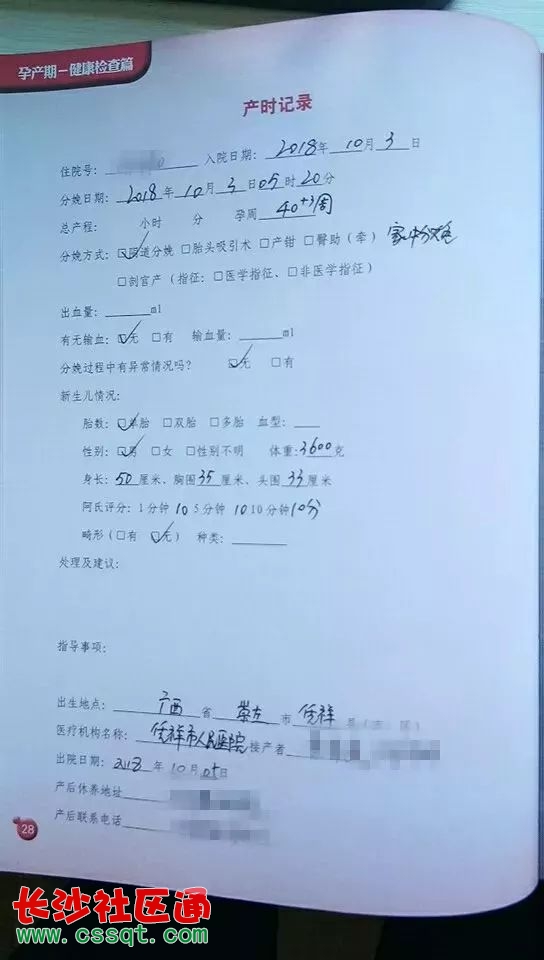 孕产期－健康检查篇
产时记录
住院号: 入院日期: 2018年 10月 3日
分娩日期: 2018年 10月 3日 05时 20分
总产程: 小时 分 孕周 40+3周
分娩方式: ☑阴道分娩 □胎头吸引术 □产钳 □臀助（牵） 家中分娩
□剖宫产（指征: □医学指征、□非医学指征）
出血量: ml
有无输血: ☑无 □有 输血量: ml
分娩过程中有异常情况吗？ ☑无 □有
新生儿情况:
胎数: ☑单胎 □双胎 □多胎 血型:
性别: ☑男 □女 □性别不明 体重: 3600克
身长: 50厘米、胸围35厘米、头围33厘米
阿氏评分: 1分钟 10 5分钟 10 10分钟 10分
畸形（□有 ☑无） 种类:
处理及建议:
指导事项:
出生地点: 广西 省 崇左 市 凭祥 县（市、区）
医疗机构名称: 凭祥市人民医院 接产者
出院日期: 2018年 10月 05日
产后休养地址
产后联系电话
28
长沙社区通
www.cssqt.com